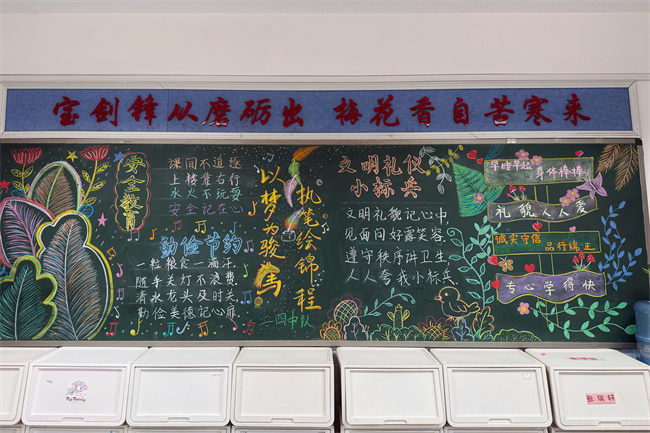 宝剑锋从磨砺出 梅花香自苦寒来
安全教育
课间不追逐
上楼靠右行
水火不玩耍
安全记在心
勤俭节约
一粒粮食一滴汗,
随手关灯不浪费,
清水龙头及时关,
勤俭美德记心扉
以梦为骏马
执笔绘锦程
二四中队
文明礼仪
小标兵
文明礼貌记心中,
见面问好露笑容,
遵守秩序讲卫生
人人夸我小标兵
早睡早起 身体棒棒
礼貌人人爱
诚实守信
品行端正
专心学得快
My Melody
张瑞轩